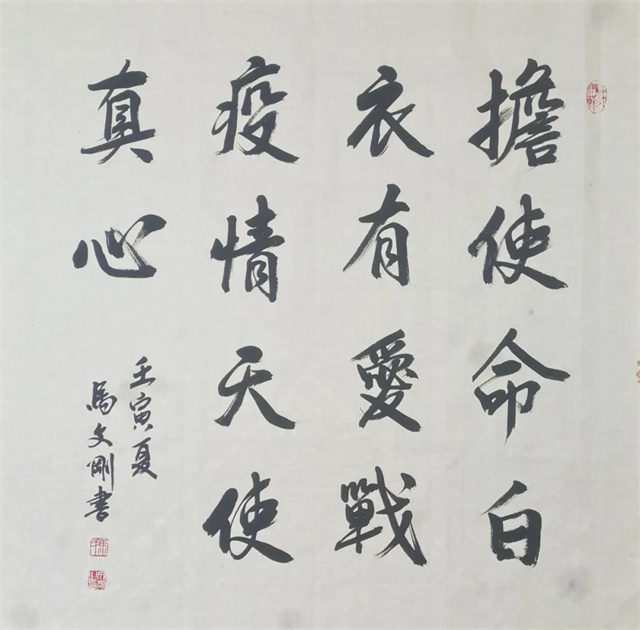 擔使命白
衣有愛戰
疫情天使
真心
壬寅夏
馬文剛書